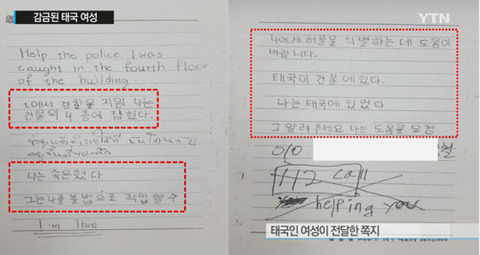 감금된 태국 여성
YTN
Help the police I was
caught in the fourth floor
of the building.
에서 경찰을 지원 나는
건물의 4 층에 잡혔다.
나는 속은했다
그는 나를 불법으로 작업 할 수
I'm Thai
나에게 건물을 식별하는 데 도움이
바랍니다.
태국이 건물에 있다.
나는 태국에 있었다
그 알려주세요 나는 도움을 요청
010.
112 call
helping you
태국인 여성이 전달한 쪽지